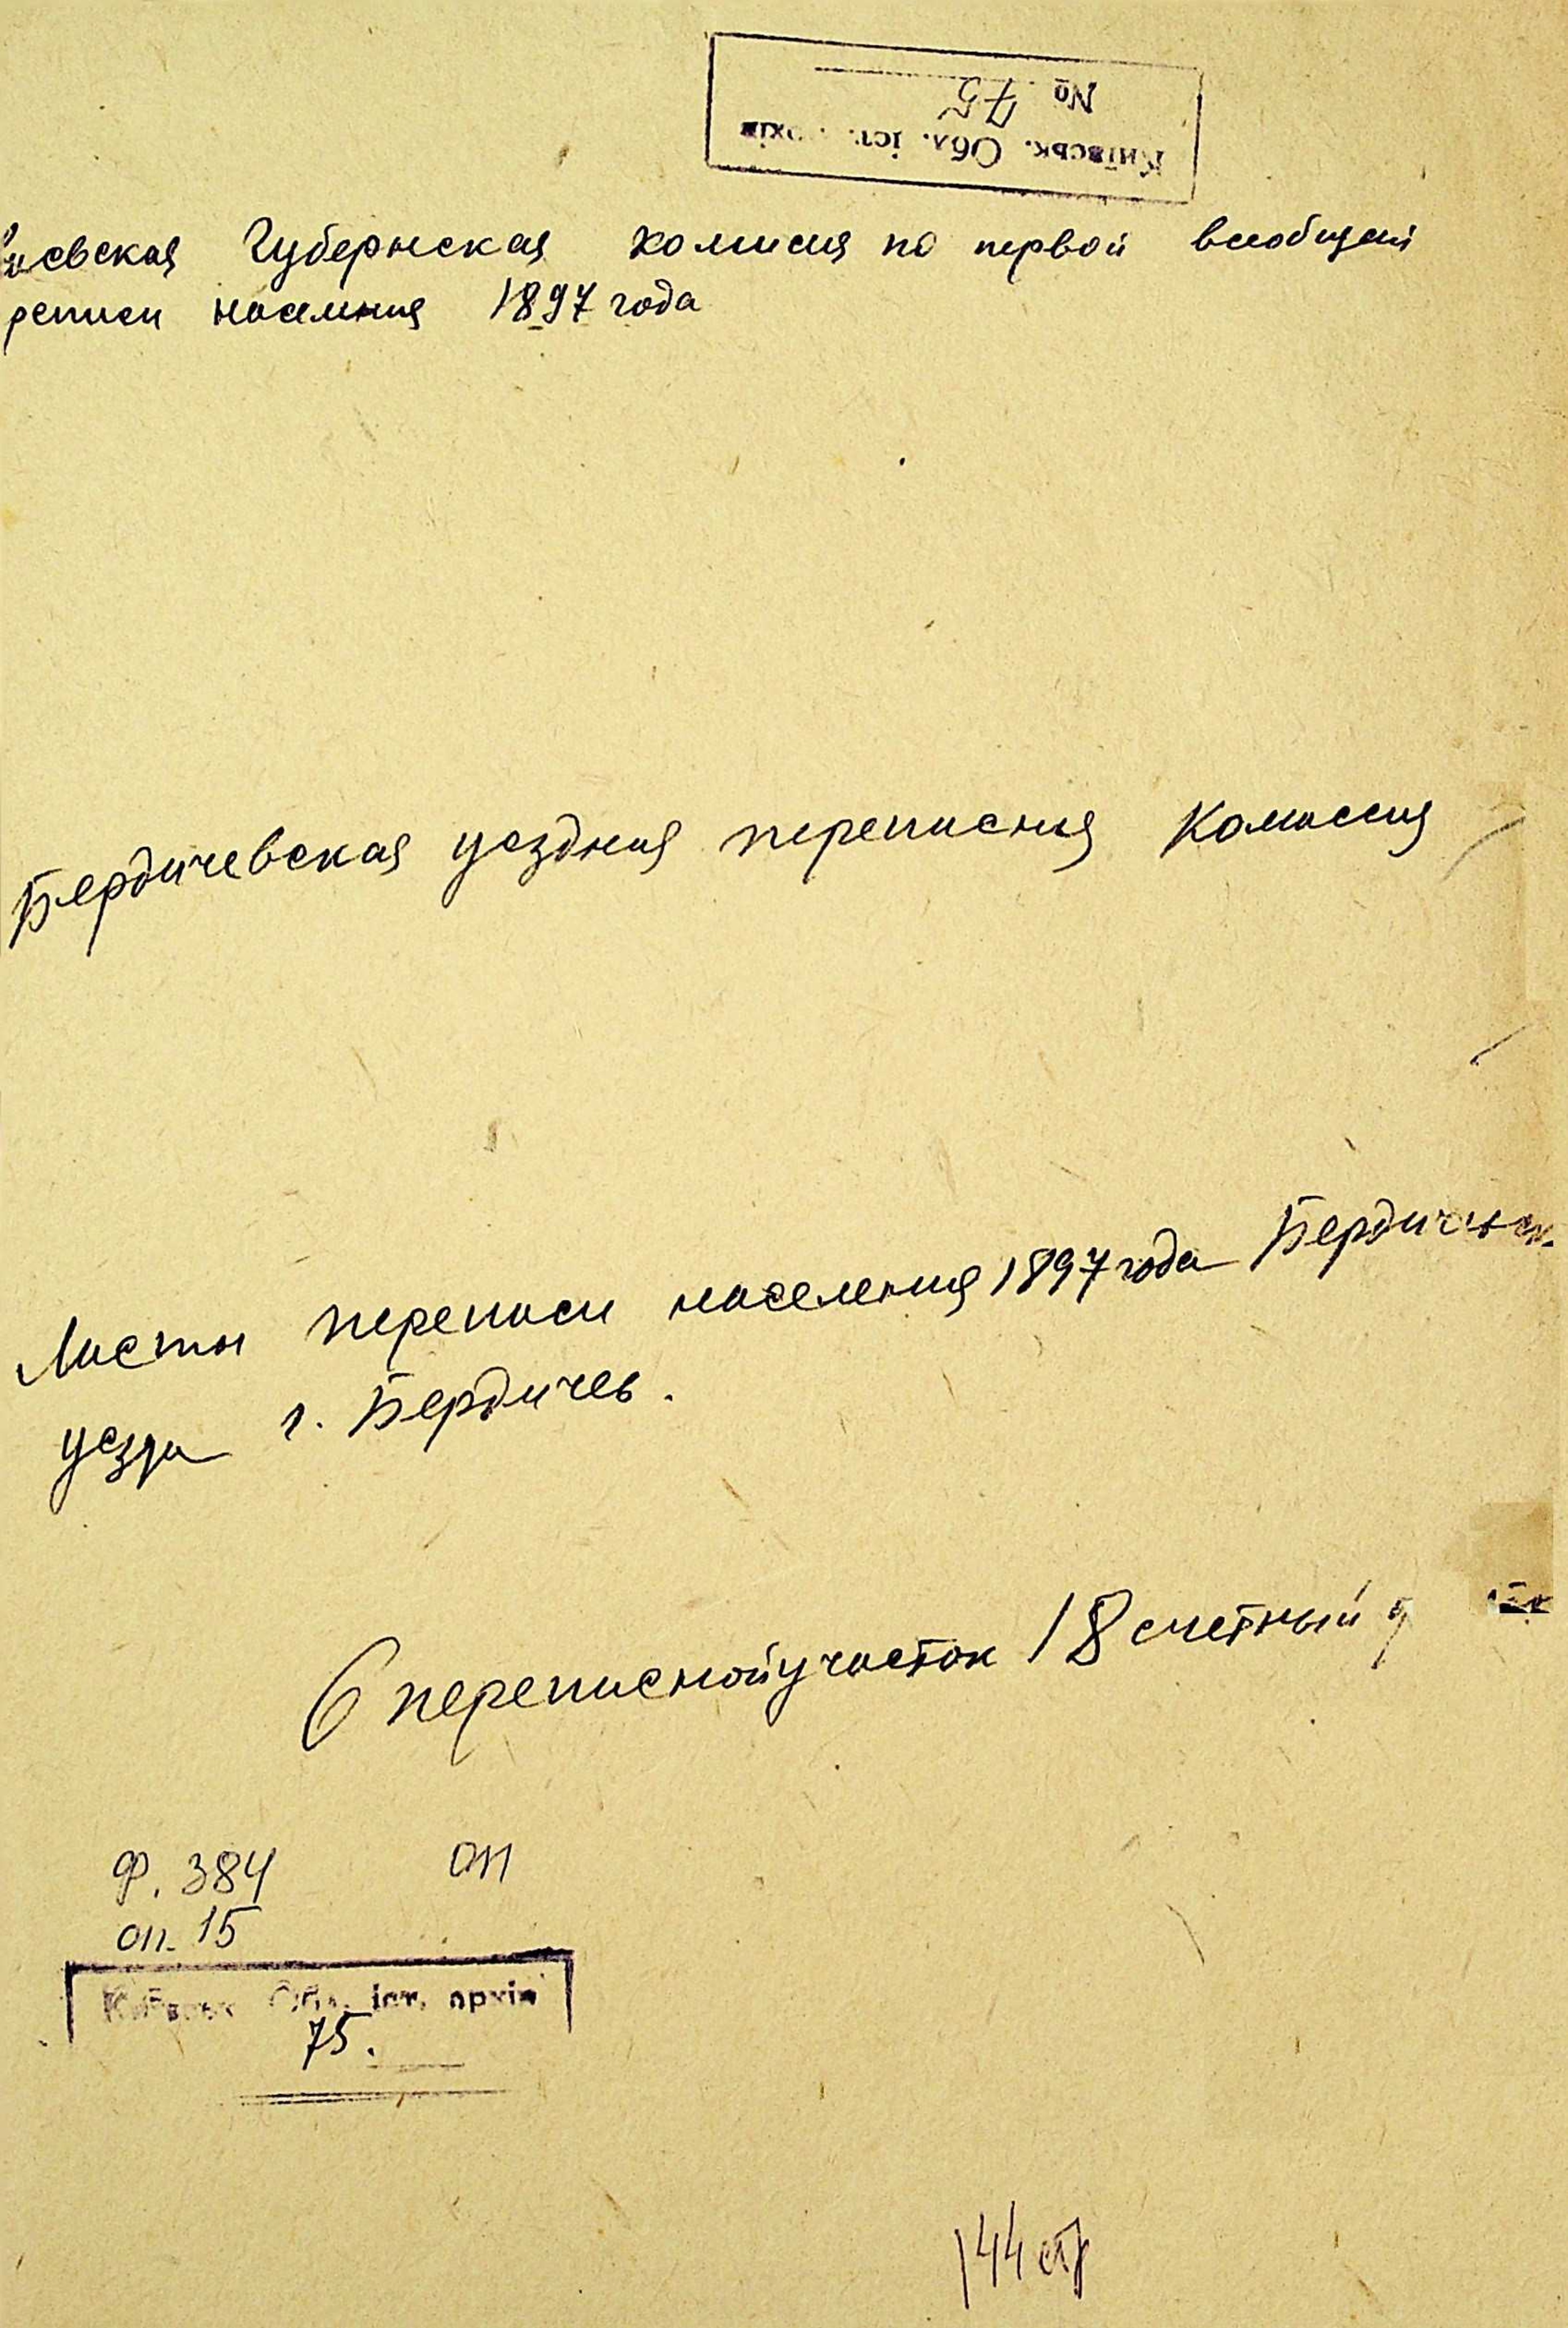 Київськ. Обл. іст. архів
№ 75
иевская Губернская комисия по первой всеобщей
реписи населения 1897 года
Бердичевская уездная переписная Комиссия
Листы переписи населения 1897 года Бердичевск.
уезда г. Бердичев.
6 переписной участок 18 счетный
Ф. 384 оп
оп. 15
Київськ Обл. іст. архів
75.
144 стр